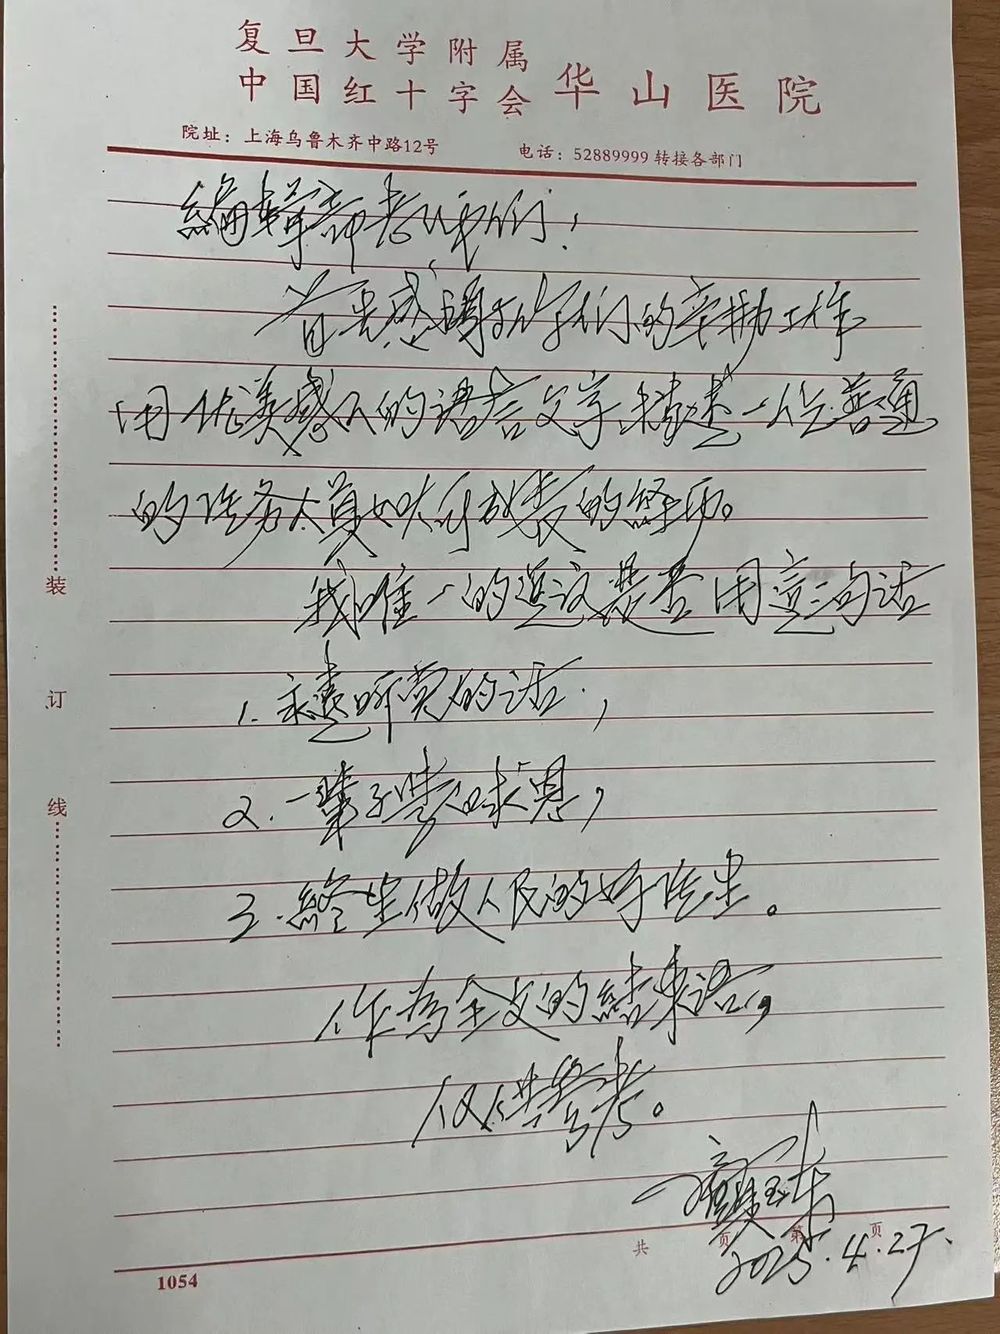 复旦大学附属
中国红十字会华山医院
院址：上海乌鲁木齐中路12号
电话：52889999 转接各部门
編辑部老师们！
首先感謝你们的辛勤工作
用优美感人的語言文字描述一位普通
的医务人員如何成长的経历。
我唯一的建议是否用這三句话
1. 永远听党的话，
2. 一辈子学白求恩，
3. 終生做人民的好医生。
作为全文的結束语，
仅供参考。
2025.4.27.
共 页 第 页
1054
装
订
线